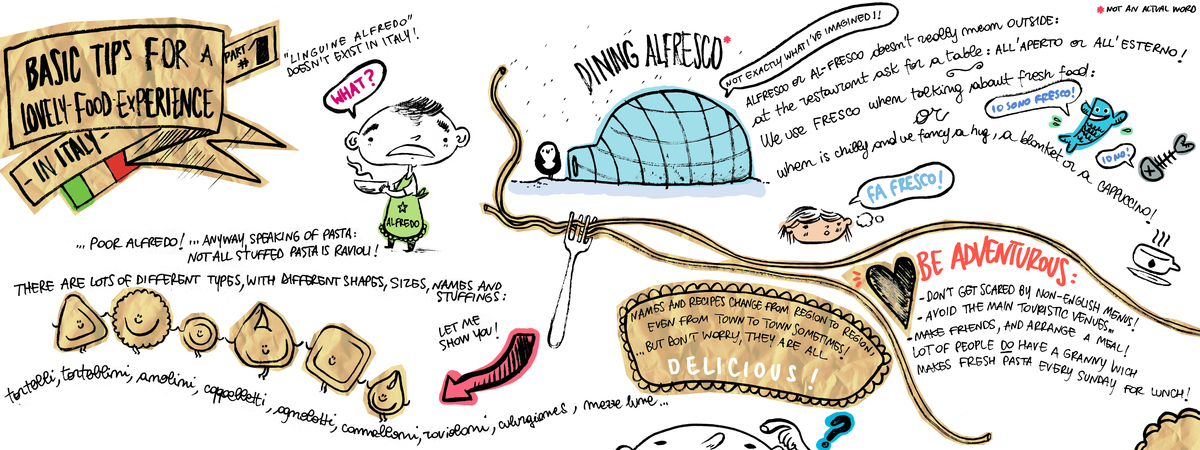 BASIC TIPS FOR A
LOVELY-FOOD EXPERIENCE
- IN ITALY -
PART
# 1
"LINGUINE ALFREDO"
DOESN'T EXIST IN ITALY!
WHAT?
ALFREDO
... POOR ALFREDO! ... ANYWAY, SPEAKING OF PASTA:
NOT ALL STUFFED PASTA IS RAVIOLI!
THERE ARE LOTS OF DIFFERENT TYPES, WITH DIFFERENT SHAPES, SIZES, NAMES AND
STUFFINGS:
LET ME
SHOW YOU!
tortelli, tortellini, anolini, cappelletti, agnolotti, cannelloni, ravioloni, culurgiones, mezze lune...
DINING ALFRESCO*
NOT EXACTLY WHAT I'VE IMAGINED!
* NOT AN ACTUAL WORD
ALFRESCO or AL-FRESCO doesn't really mean OUTSIDE:
at the restaurant ask for a table: ALL'APERTO or ALL'ESTERNO!
We use FRESCO when talking about fresh food:
IO SONO FRESCO!
IO NO!
or
when is chilly and we fancy a hug, a blanket or a CAPPUCCINO!
FA FRESCO!
NAMES AND RECIPES CHANGE FROM REGION TO REGION,
EVEN FROM TOWN TO TOWN SOMETIMES!
...BUT DON'T WORRY, THEY ARE ALL
DELICIOUS!
BE ADVENTUROUS:
- DON'T GET SCARED BY NON-ENGLISH MENUS!
- AVOID THE MAIN TOURISTIC VENUES...
- MAKE FRIENDS, AND ARRANGE A MEAL!
LOT OF PEOPLE DO HAVE A GRANNY WICH
MAKES FRESH PASTA EVERY SUNDAY FOR LUNCH!
?